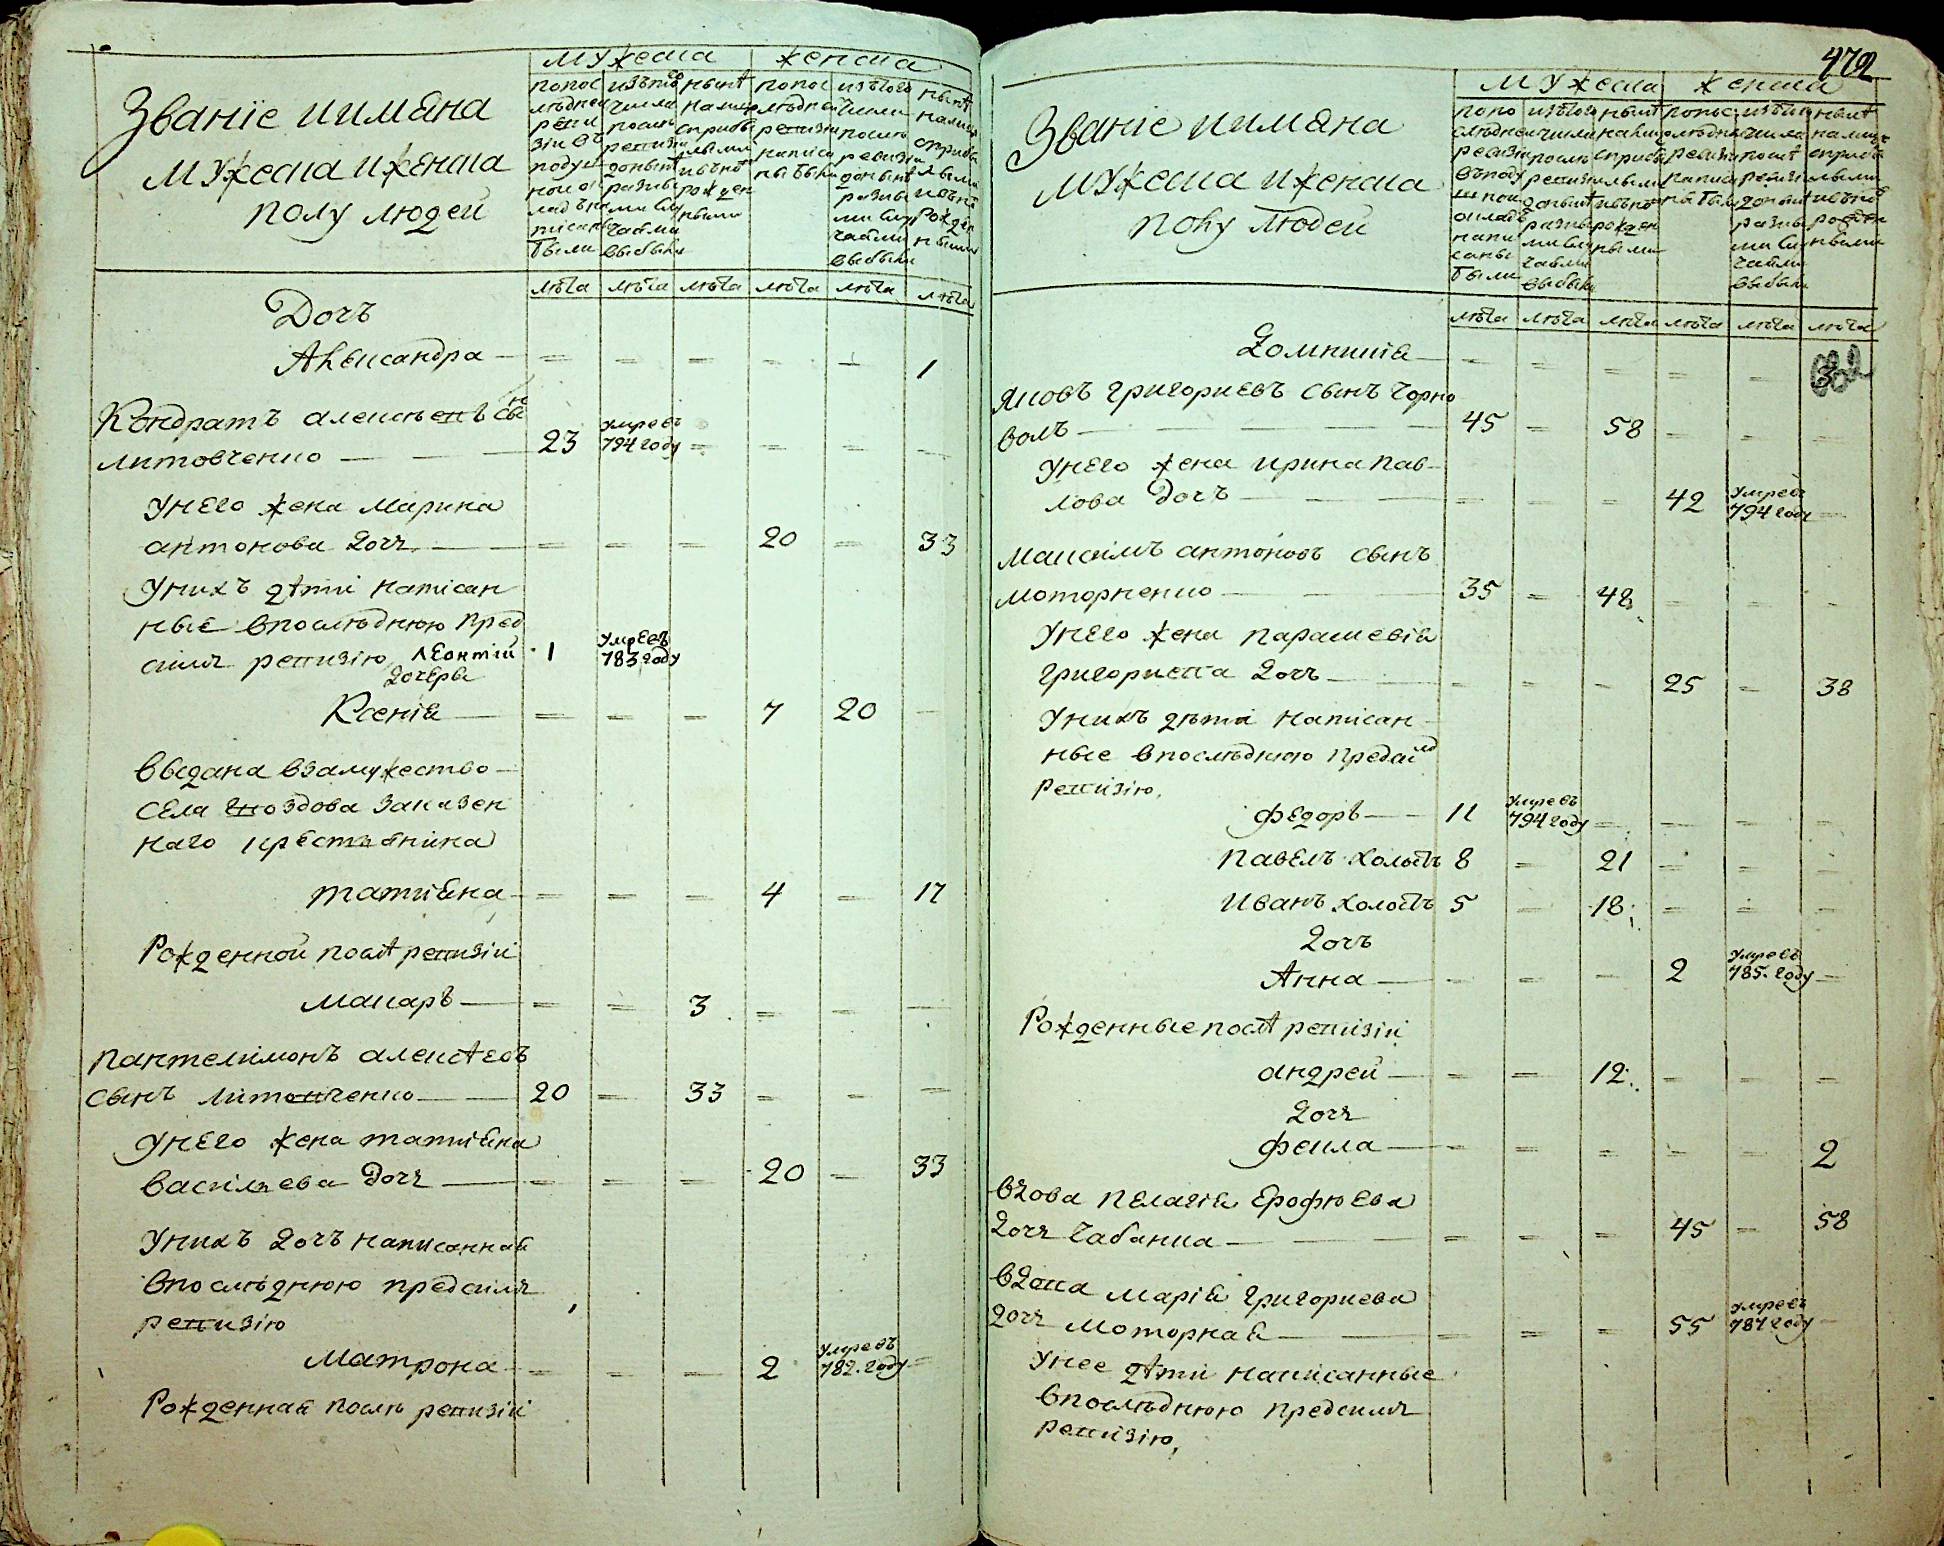 Званіе иимяна
мужеска иженска
полу людей
мужеска
женска
попос
лѣдней
реви
зіи въ
подуш
ной ок
ладъ на
писаны
были
изътого
числа
послѣ
ревизіи
донынѣ
разны
ми слу
чаями
выбыли
нынѣ
налицо
сприбы
лыми
ивънов
рожден
ными
попос
лѣдней
ревизіи
написа
ны были
изътого
числа
послѣ
ревизіи
донынѣ
разны
ми слу
чаями
выбыли
нынѣ
налицо
сприбы
лыми
ивънов
рожден
ными
лѣта лѣта лѣта лѣта лѣта лѣта
Дочъ
Александра 1
Кондратъ алексѣевъ сынъ
литовченко 23 умревъ 794 году
унего жена марина
антонова дочь 20 33
унихъ дѣти написан
ные впослѣднюю пред
симъ ревизію леонтій 1 умревъ 783 году
дочеръ
Ксенія 7 20
выдана взамужество
села гвоздова заказен
наго крестьянина
татияна 4 17
Рожденной послѣ ревизіи
макаръ 3
пантелимонъ алексѣевъ
сынъ литовченко 20 33
унего жена татияна
василиева дочь 20 33
унихъ дочъ написанная
впослѣднюю предсимъ
ревизію
матрона 2 умревъ 782. году
Рожденная послѣ ревизіи
472
Званіе иимяна
мужеска иженска
полу людей
мужеска
женска
попо
слѣдней
ревизіи
въподу
шной
окладъ
напи
саны
были
изътого
числа
послѣ
ревизіи
донынѣ
разны
ми слу
чаями
выбыли
нынѣ
налицо
сприбы
лыми
ивънов
рожден
ными
попос
лѣдней
ревизіи
написа
ны были
изътого
числа
послѣ
ревизіи
донынѣ
разны
ми слу
чаями
выбыли
нынѣ
налицо
сприбы
лыми
ивънов
рожден
ными
лѣта лѣта лѣта лѣта лѣта лѣта
Домникія
яковъ григориевъ сынъ чорно
волъ 45 58
унего жена ирина пав
лова дочъ 42 умревъ 794 году
максимъ антоновъ сынъ
моторненко 35 48
унего жена параскевія
григориева дочъ 25 38
унихъ дѣти написан
ные впослѣднюю предсимъ
ревизію,
федоръ 11 умревъ 794 году
павелъ холостъ 8 21
иванъ холостъ 5 18
дочъ
Анна 2 умревъ 785. году
Рожденные послѣ ревизіи
андрей 12
дочь
фекла 2
вдова пелагія ерофѣева
дочь чабанка 45 58
вдова марія григориева
дочь моторная 55 умревъ 787 году
унее дѣти написанные
впослѣднюю предсимъ
ревизію,